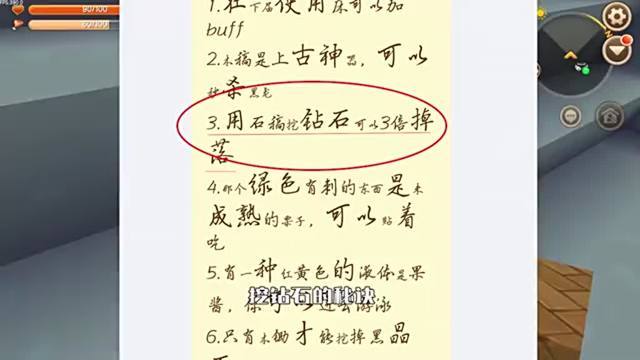 90/100
100/100
1.在下届使用床可以加
buff
2.木稿是上古神器，可以
秒杀黑龙
3.用石稿挖钻石可以3倍掉
落
4.那个绿色有刺的东西是未
成熟的栗子，可以贴着
吃
5.有一种红黄色的液体是果
酱，你可以过去游泳
挖钻石的秘诀
6.只有木锄才能挖掉黑晶
石